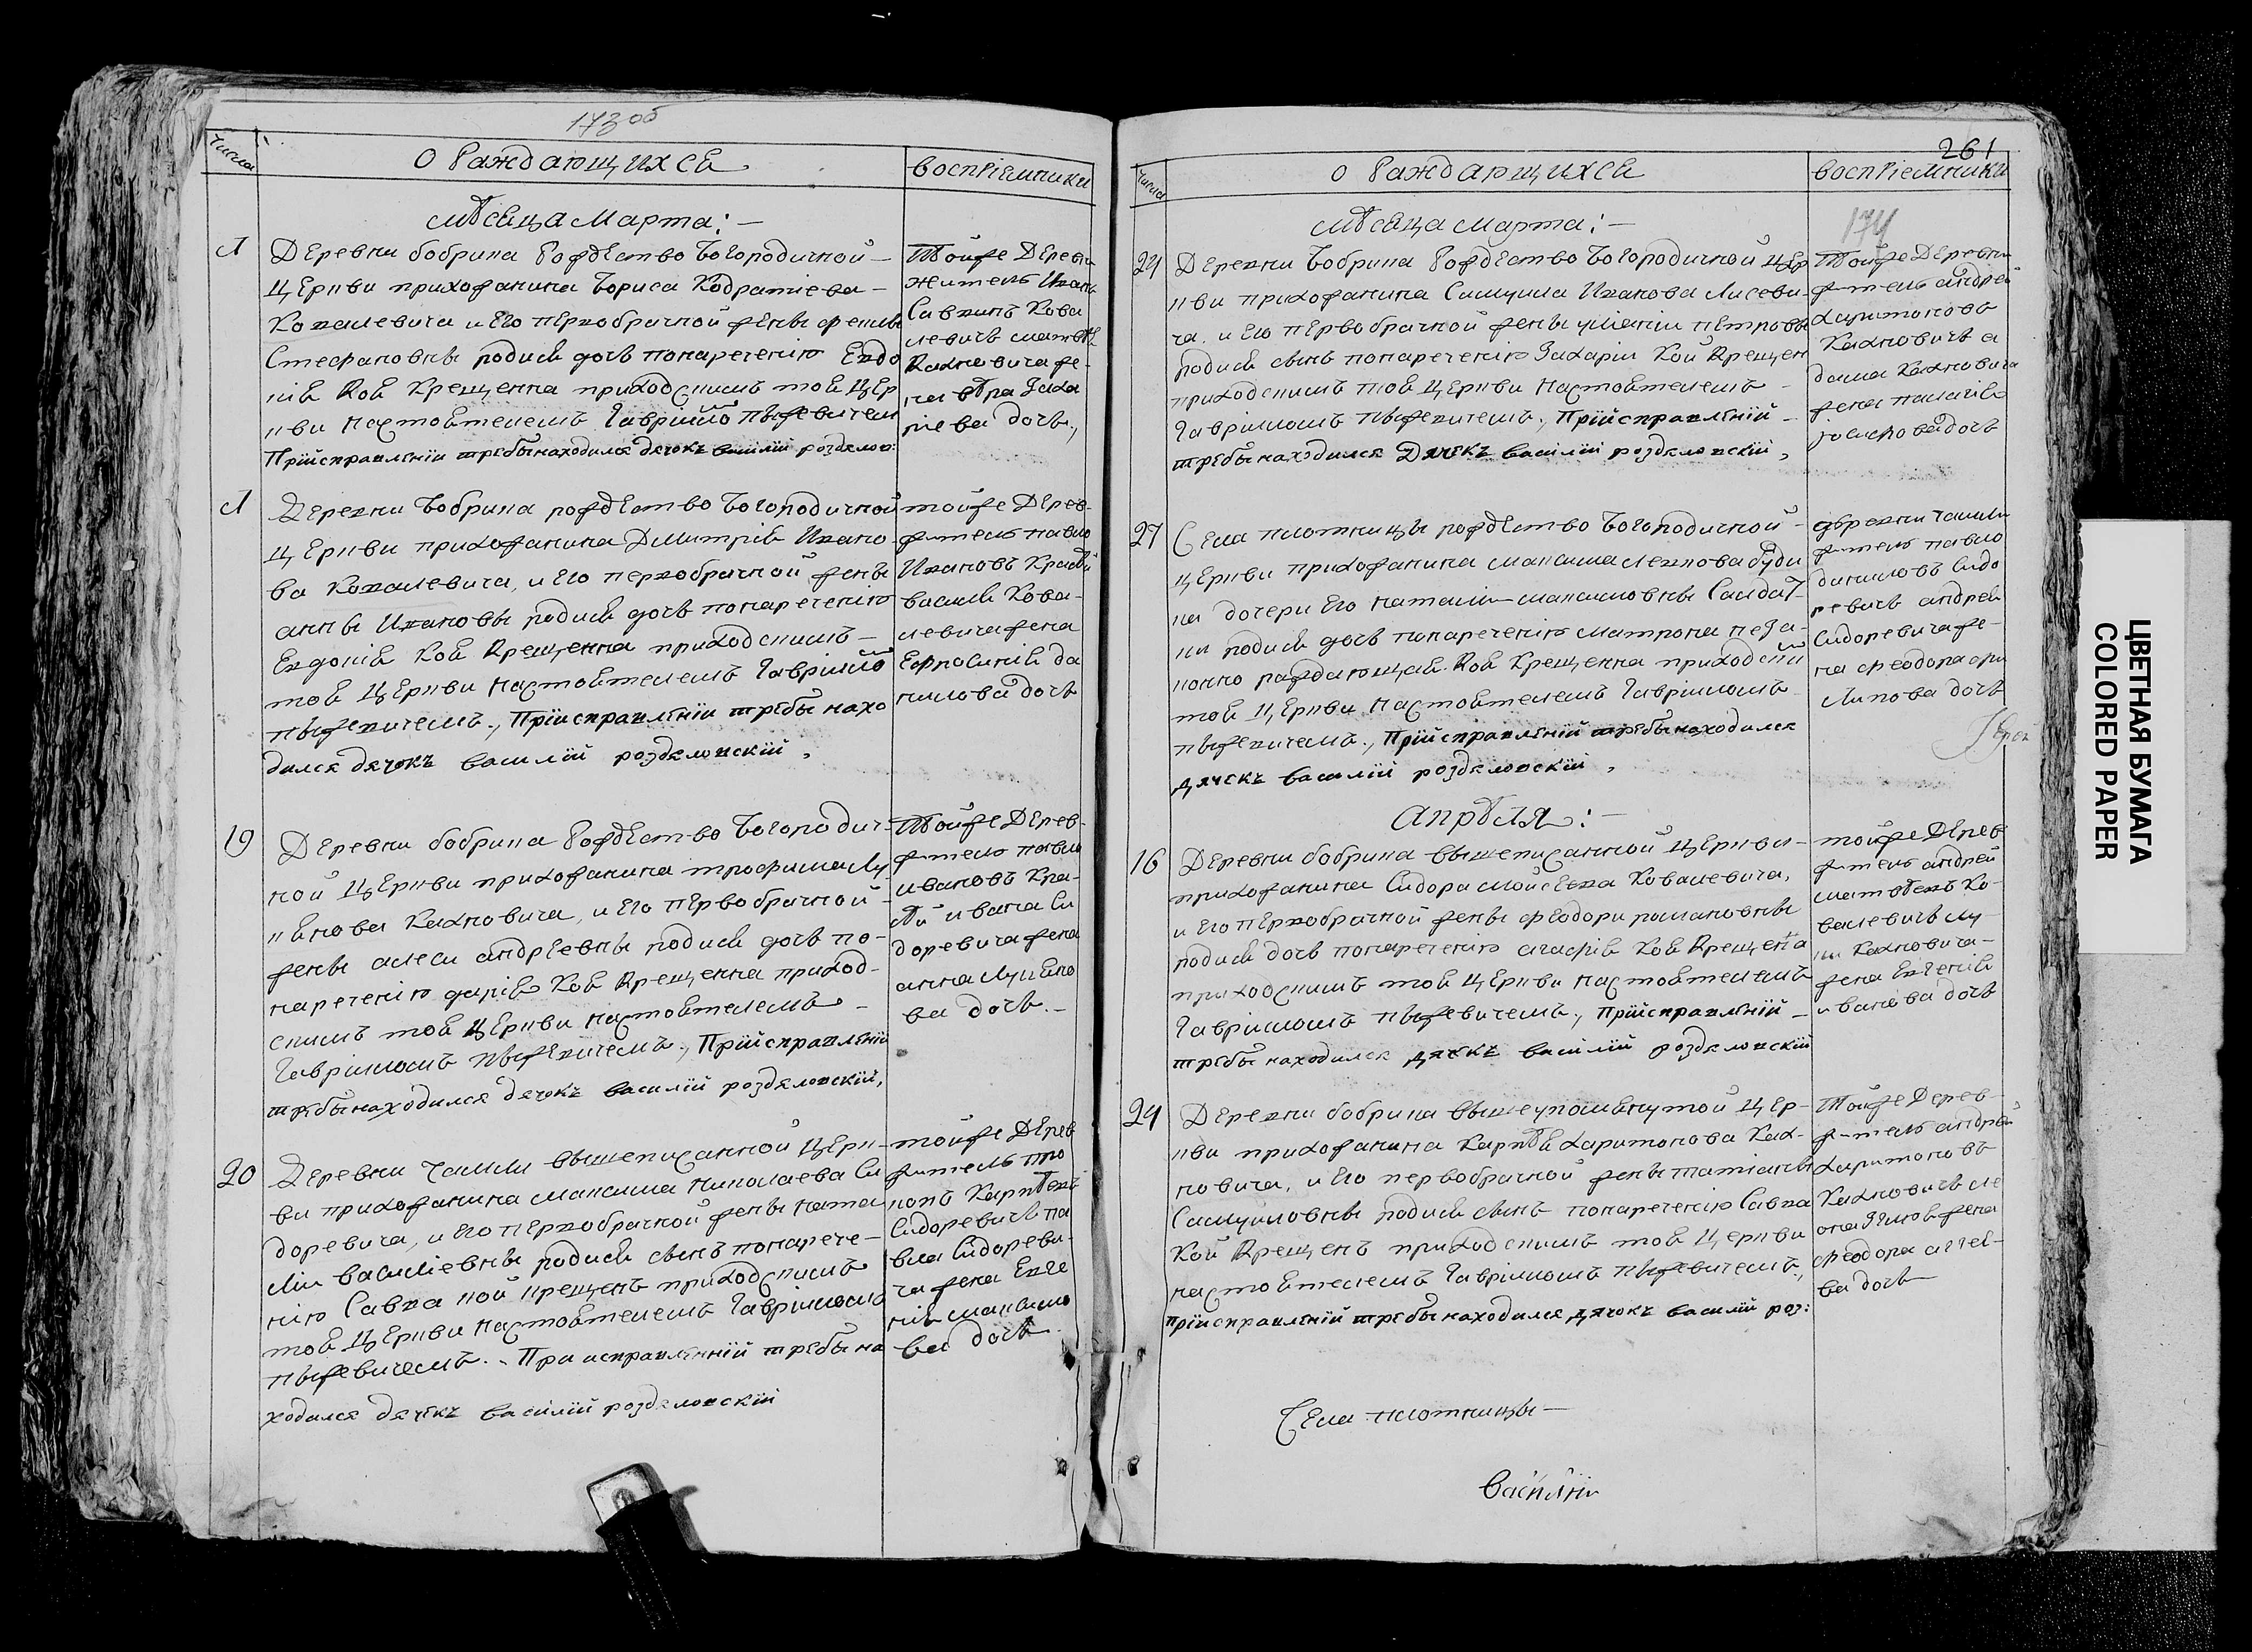 173 об
Числа
О Раждающихся
воспрiемники
Мѣсяца Марта: —
1
Деревни бобрина Рождество Богородичной —
Церкви прихожанина Бориса Кодратiева —
Ковалевича и его первобрачной жены
Стефановны родися дочь понаречению Евдо
кiя коя крещенна приходскимъ тоя Цер
кви настоятелемъ Гаврiило Пыжевичем
Прiисправленiи требы находился дячокъ василiй роздяловс:
Тойже Деревни
житель Иванъ
Саввинъ Кова
левичъ
Кахновича же-
на
рiева дочь,
1
Деревни Бобрина рождество Богородичной
Церкви прихожанина Дмитрiя Ивано-
ва Ковалевича, и его первобрачной жены
анны Ивановы родися дочь понаречению
Евдокiя коя крещенна приходскимъ —
тоя Церкви настоятелемъ Гаврiило
пыжевичемъ., Прiисправленiи требы нахо
дился дячокъ василiй роздяловскiй,
тойже Дерев-
житель павло
Ивановъ
василя Кова-
левича жена
Ефросинiя да
нилова дочь
19
Деревни бобрина Рождество Богородич-
ной Церкви прихожанина трофима Лу
кянова Кахновича, и его первобрачной —
жены алеси андрѣевны родися дочь по-
наречению дарiя коя крещенна приход-
скимъ тоя Церкви настоятелемъ —
Гаврiиломъ пыжевичемъ., Прiисправленiи
требы находился дячокъ василiй роздяловскiй,
Тойже Дерев-
житель павло
ивановъ Кра-
ивана Си
доревича жена
анна Лукяно
ва дочь. —
20
Деревни вышеписанной Церк-
ви прихожанина Максима Николаева Си
доревича, и его первобрачной жены Ната
лiи василiевны родися сынъ понарече-
нiю Савва кой крещенъ приходскимъ
тоя Церкви настоятелемъ Гаврiиломъ
пыжевичемъ. - При исправленнiй требы на
ходился дячекъ василiй роздяловскiй
тойже Дерев
житель про
копъ Карпѣевъ
Сидоревичъ па
вла Сидореви-
ча жена Евге
нiя максимо
ва дочь
261
Числа
О Раждающихся
воспрiемники
174
Мѣсяца Марта: —
24
Деревни Бобрина Рождество Богородичной Цер
кви прихожанина Самуила Иванова Лисеви-
ча. и его первобрачной жены улiянiи петровы
родися сынъ понаречению Захарiи Кой крещен
приходскимъ тоя Церкви настоятелемъ —
Гаврiиломъ пыжевичемъ., Прiисправленiй —
требы находился Дячекъ василiй роздяловскiй,
Тойже Деревни
житель андрей
Харитоновъ
Кахновичъ а
дама Кахновича
жена
дочь
27
Села плотницы рождество Богородичной —
Церкви прихожанина максима
на дочери его наталiи максимовны Салдат-
ки родися дочь понаречению матрона неза-
конно раждающая. коя крещенна приходски
тоя Церкви настоятелемъ Гаврiиломъ
пыжевичемъ., Прiисправленiй требы находился
дячекъ василiй роздяловскiй,
деревни
житель павло
даниловъ Сидо
ревичъ андрея
Сидоревича же-
на феодора фи
липова дочь
Iерей
Апрѣля: —
16
Деревни бобрина вышеписанной Церкви —
прихожанина Сидора мойсеева Ковалевича,
и его первобрачной жены феодори романовны
родися дочь понаречению агафiя коя крещенна
приходскимъ тоя Церкви настоятелемъ
Гаврiиломъ пыжевичемъ., Прiисправленiй —
требы находился дячекъ василiй роздяловскiй
тойже Дерев
житель андрей
матвѣевъ Ко-
валевичъ лу-
ки Кахновича —
жена Евгенiя
иванова дочь
24
Деревни бобрина вышеупомянутой Цер-
кви прихожанина Карпѣя харитонова Ках-
новича, и его первобрачной жены татiаны
Самуиловны родися сынъ понаречению Савва
Кой крещенъ приходскимъ тоя Церкви
настоятелемъ Гаврiиломъ пыжевичемъ.,
Прiисправленiй требы находился дячокъ василiй роз:
Тойже Дерев-
житель андрей
Харитоновъ
Кахновичъ ле
она жена
феодора
ва дочь
Села плотницы —
василiй